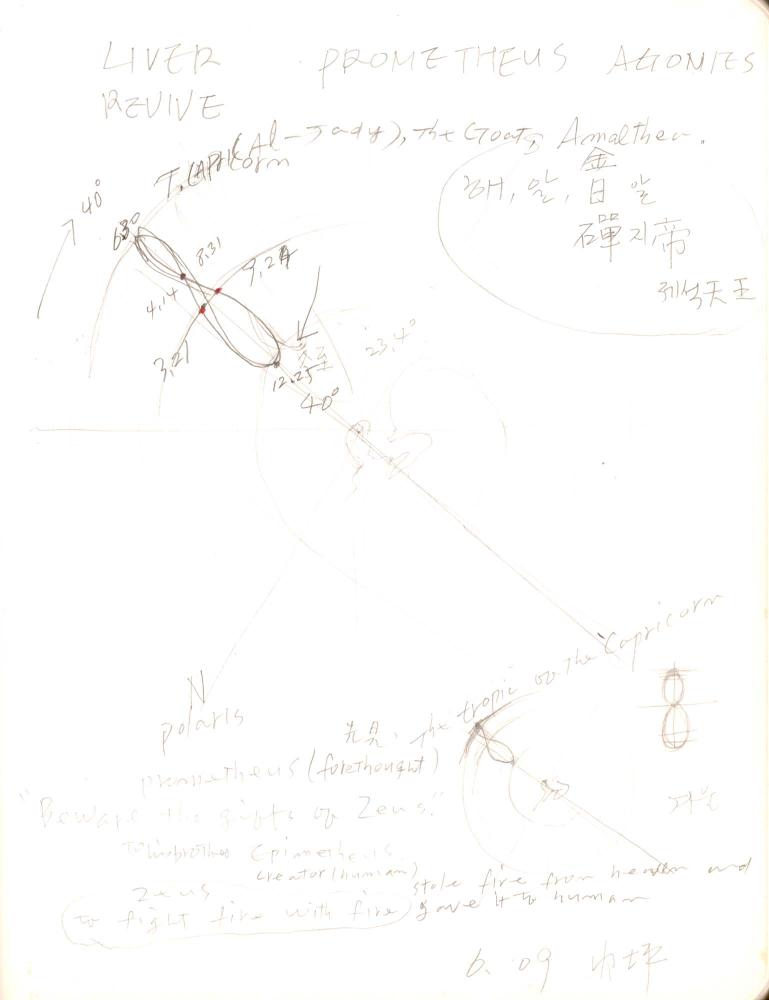 LIVER PROMETHEUS AGONIES
REVIVE
T. CAPRICorn (Al-Jady), The Goat, Amalthea.
金
해, 알, 日 알
지帝
제석天王
40°
8.31
9.24
4.14
3.21
12.25
至
23.4°
40°
N
polaris
The tropic of The Capricorn
prometheus (forethought)
"Beware the gifts of Zeus."
to his brother Epimetheus
creator (human)
stole fire from heaven and
gave it to human
Zeus
to fight fire with fire
6. 09